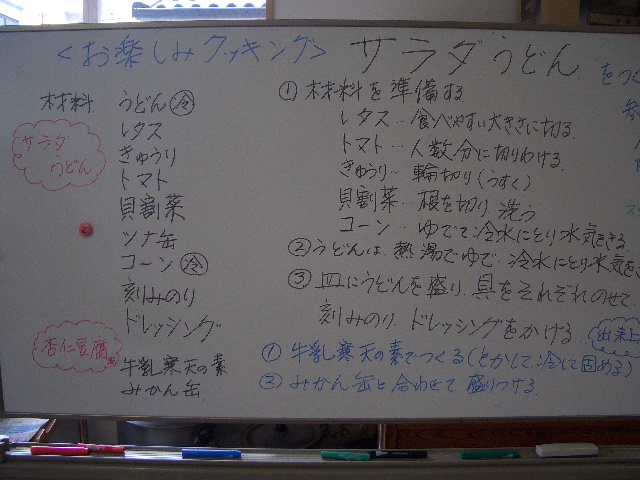 <お楽しみクッキング> サラダうどん をつく
材料 うどん(冷)
サラダうどん
レタス
きゅうり
トマト
貝割菜
ツナ缶
コーン(冷)
刻みのり
ドレッシング
杏仁豆腐風
牛乳寒天の素
みかん缶
① 材料を準備する
レタス…食べやすい大きさに切る
トマト…人数分に切りわける
きゅうり…輪切り(うすく)
貝割菜…根を切り洗う
コーン…ゆでて冷水にとり水気をきる
②うどんは、熱湯でゆで、冷水にとり水気を
③ 皿にうどんを盛り、具をそれぞれのせて
刻みのり、ドレッシングをかける
出来上
① 牛乳寒天の素でつくる(とかして、冷して固める)
② みかん缶と合わせて、盛りつける